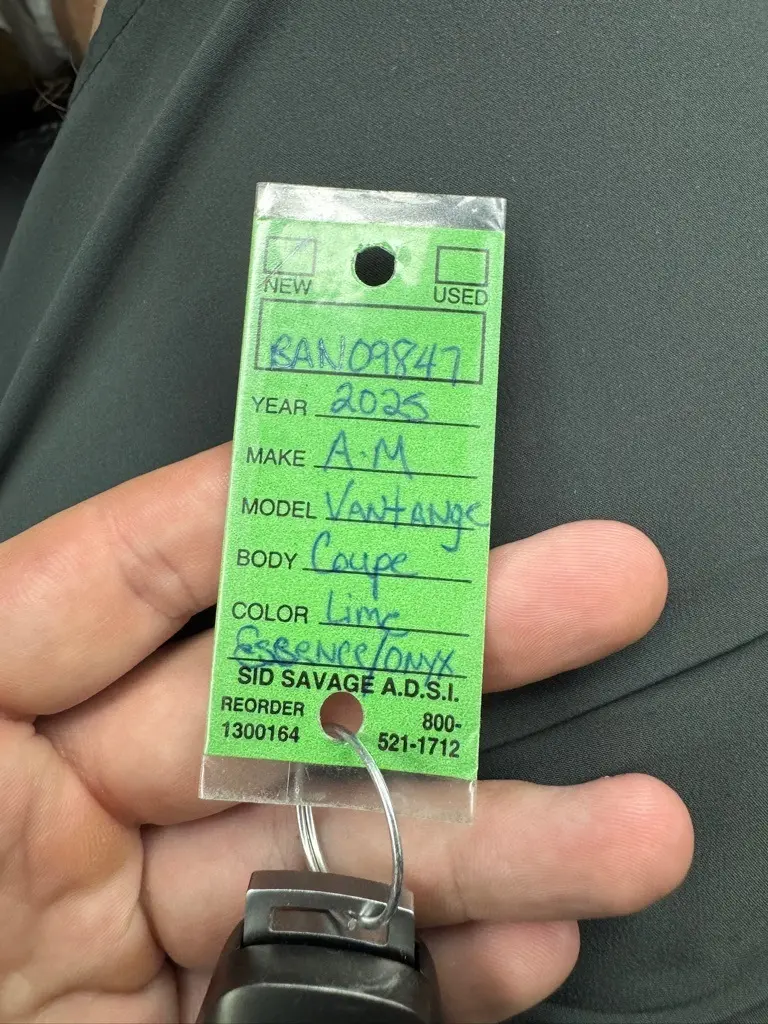 NEW USED
BAN09847
YEAR 2025
MAKE A.M
MODEL Vantange
BODY Coupe
COLOR Lime
Essence/Onyx
SID SAVAGE A.D.S.I.
REORDER 800-
1300164 521-1712